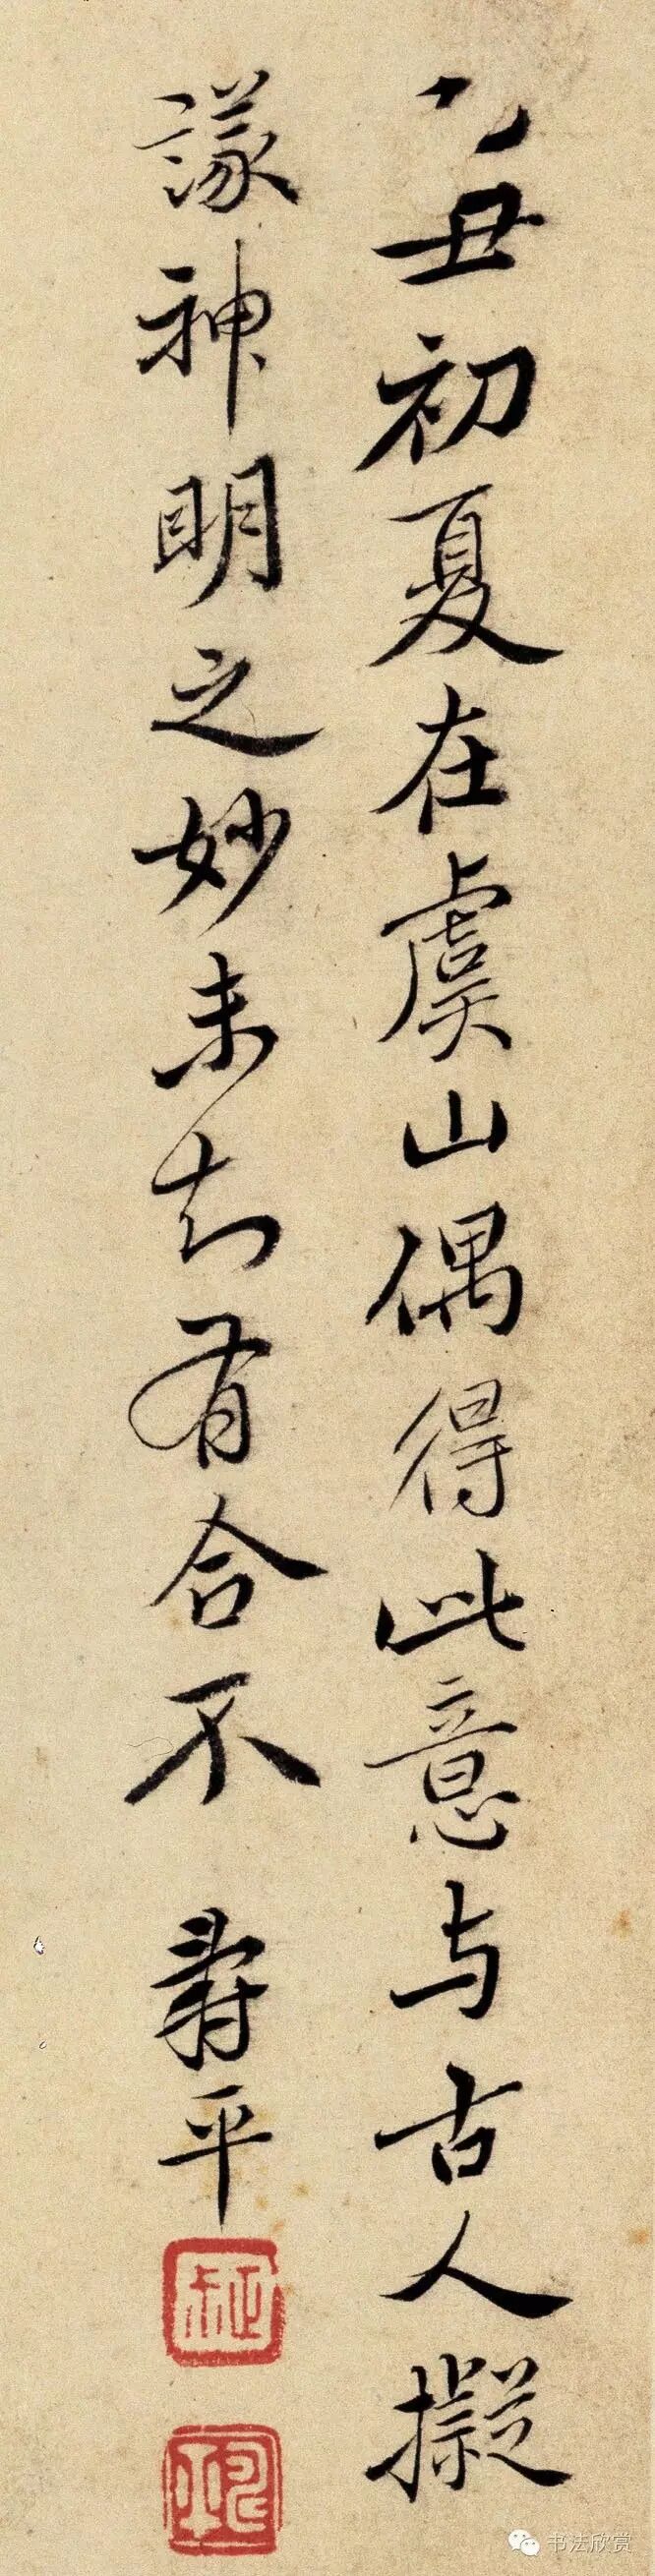 乙丑初夏在虞山偶得此意与古人擬
議神明之妙未知有合不 壽平
书法欣赏